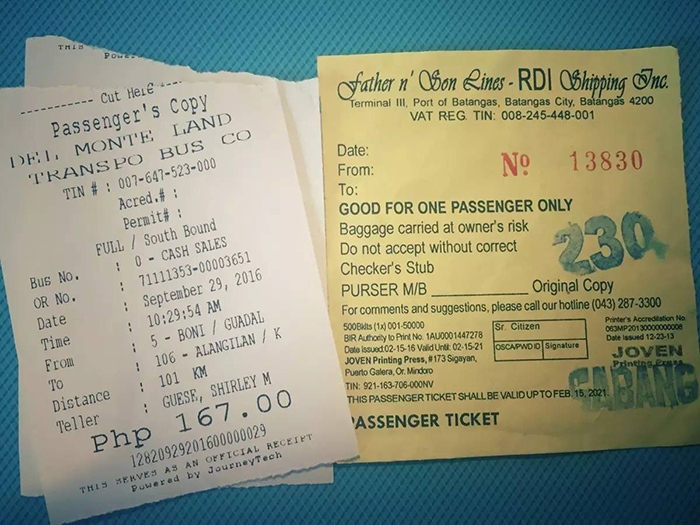 THIS
Power
Cut Here
Passenger's Copy
DEL MONTE LAND
TRANSPO BUS CO
TIN # : 007-647-523-000
Acred.# :
Permit# :
FULL / South Bound
Bus No. : 0 - CASH SALES
OR No. : 71111353-00003651
Date : September 29, 2016
Time : 10:29:54 AM
From : 5 - BONI / GUADAL
To : 106 - ALANGILAN / K
Distance : 101 KM
Teller : GUESE, SHIRLEY M
Php 167.00
12820929201600000029
THIS SERVES AS AN OFFICIAL RECEIPT
Powered by JourneyTech
Father n' Son Lines - RDI Shipping Inc.
Terminal III, Port of Batangas, Batangas City, Batangas 4200
VAT REG. TIN: 008-245-448-001
Date:
From:
Nº 13830
To:
GOOD FOR ONE PASSENGER ONLY
Baggage carried at owner's risk
Do not accept without correct
Checker's Stub
230
PURSER M/B ____________ Original Copy
For comments and suggestions, please call our hotline (043) 287-3300
500Bklts (1x) 001-50000
BIR Authority to Print No. 1AU0001447278
Date Issued:02-15-16 Valid Until: 02-15-21
JOVEN Printing Press, #173 Sigayan,
Puerto Galera, Or. Mindoro
TIN: 921-163-706-000NV
Sr. Citizen
OSCA/PWD ID Signature
Printer's Accreditation No.
Date Issued 12-23-13
JOVEN
Printing Press
SABANG
THIS PASSENGER TICKET SHALL BE VALID UP TO FEB. 15, 2021
PASSENGER TICKET